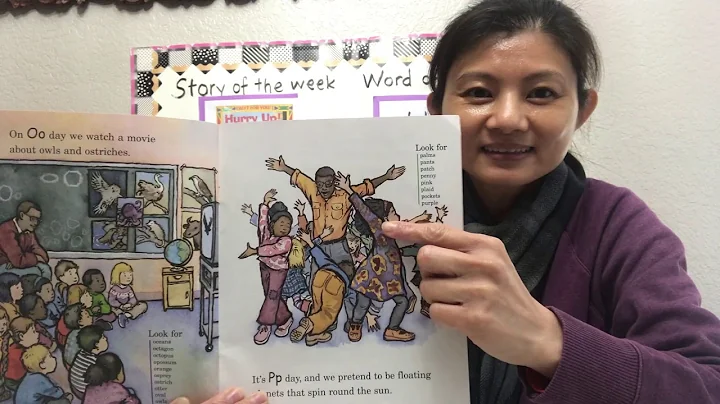 Story of the week
Word o
Hurry Up!
On Oo day we watch a movie
about owls and ostriches.
Look for
oceans
octagon
octopus
opossum
orange
osprey
ostrich
otter
oval
owls
Look for
palms
pants
patch
penny
pink
plaid
pockets
purple
It's Pp day, and we pretend to be floating
planets that spin round the sun.